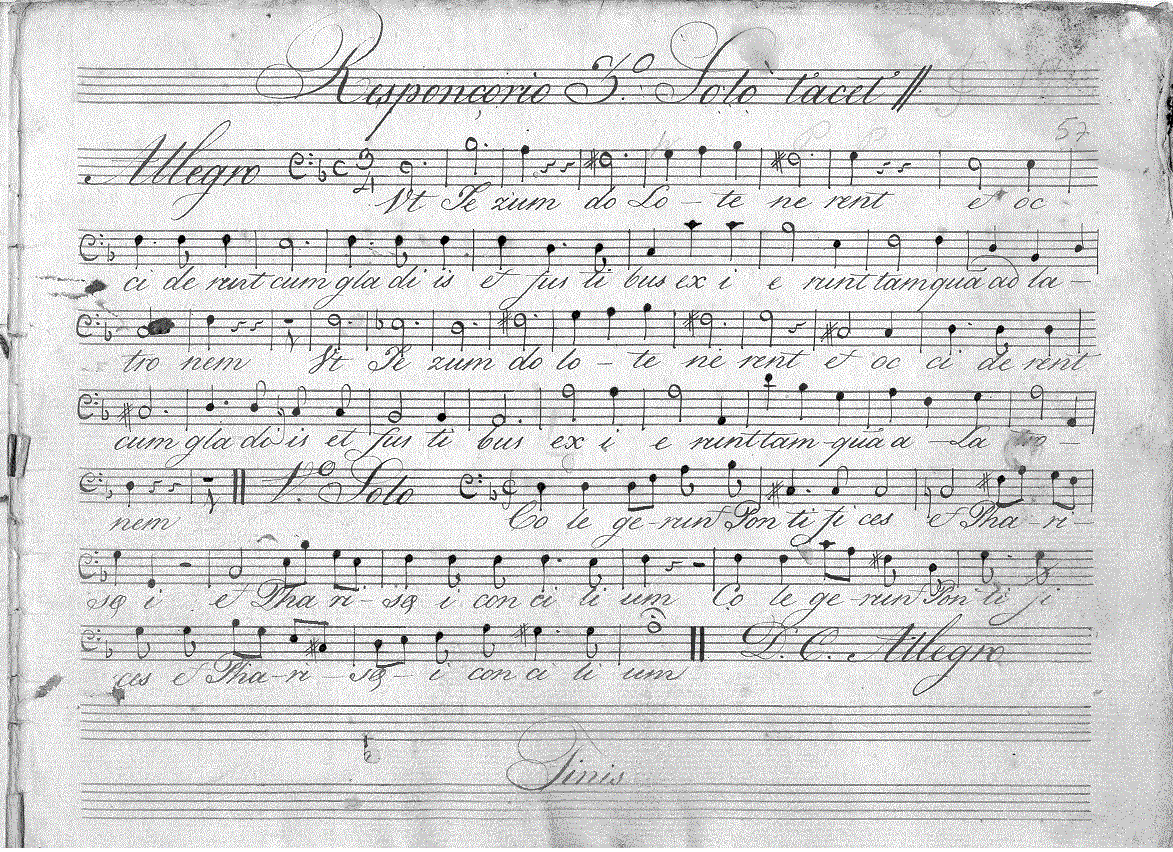 Responçorio 3.o Solo tacet
57
Allegro C 3/4
Vt Je zum do Lo – te ne rent et oc
ci de runt cum gla di is et fus ti bus ex i e runt tam quã ad la –
tro nem Vt Je zum do lo – te ne rent et oc ci de rent
cum gla di is et fus ti bus ex i e runt tam – quã a – La tro –
nem V.o Solo Co le ge – runt Pon ti fi ces et Pha – ri –
sæ i et Pha ri – sæ i con ci li um Co le ge – runt Pon ti fi
ces et Pha – ri – sæ – i con ci li um D. C. Allegro
Finis